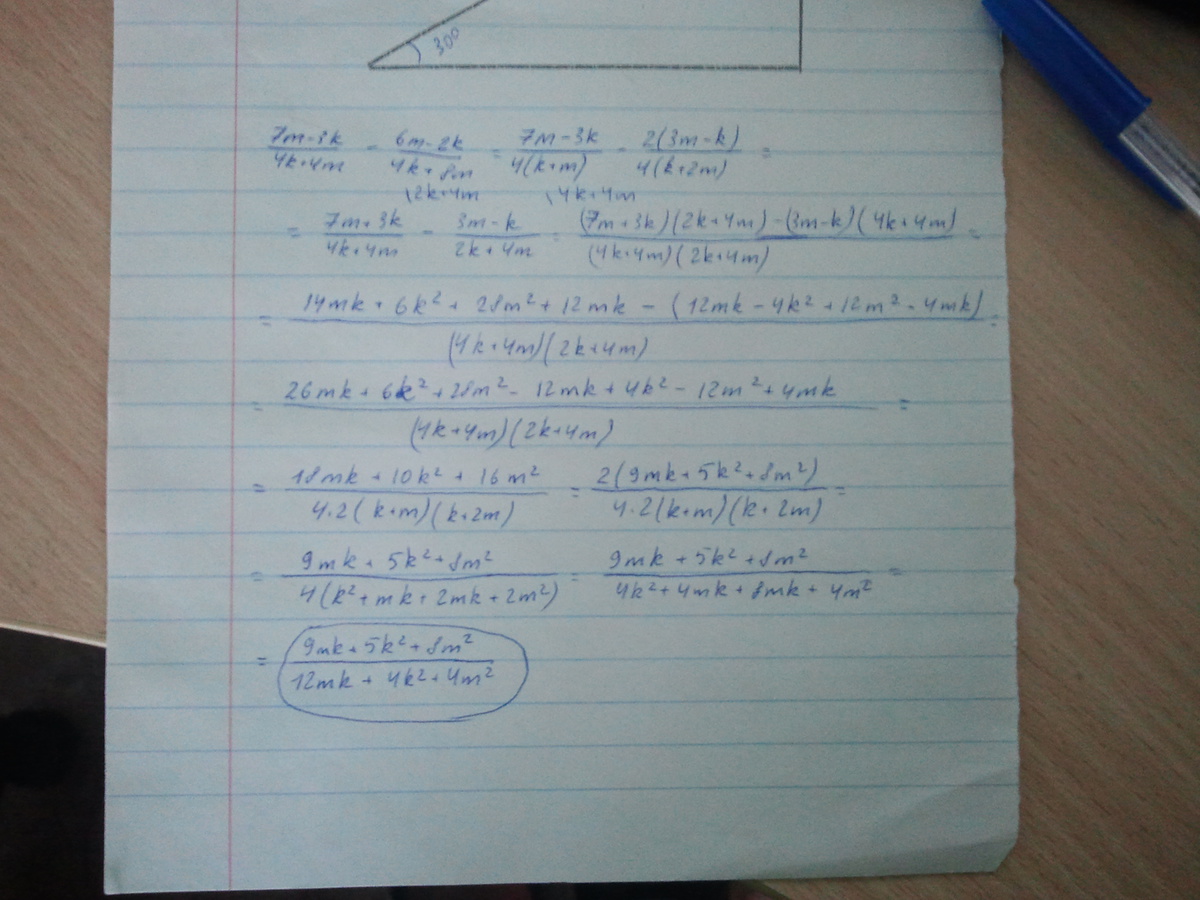 30°
(7m-3k)/(4k+4m) - (6m-2k)/(4k+8m) = (7m-3k)/(4(k+m)) - (2(3m-k))/(4(k+2m)) =
\2k+4m \4k+4m
= (7m+3k)/(4k+4m) - (3m-k)/(2k+4m) = ((7m+3k)(2k+4m)-(3m-k)(4k+4m))/((4k+4m)(2k+4m)) =
= (14mk+6k²+28m²+12mk-(12mk-4k²+12m²-4mk))/((4k+4m)(2k+4m)) =
= (26mk+6k²+28m²-12mk+4k²-12m²+4mk)/((4k+4m)(2k+4m)) =
= (18mk+10k²+16m²)/(4·2(k+m)(k+2m)) = (2(9mk+5k²+8m²))/(4·2(k+m)(k+2m)) =
= (9mk+5k²+8m²)/(4(k²+mk+2mk+2m²)) = (9mk+5k²+8m²)/(4k²+4mk+8mk+4m²) =
= (9mk+5k²+8m²)/(12mk+4k²+4m²)